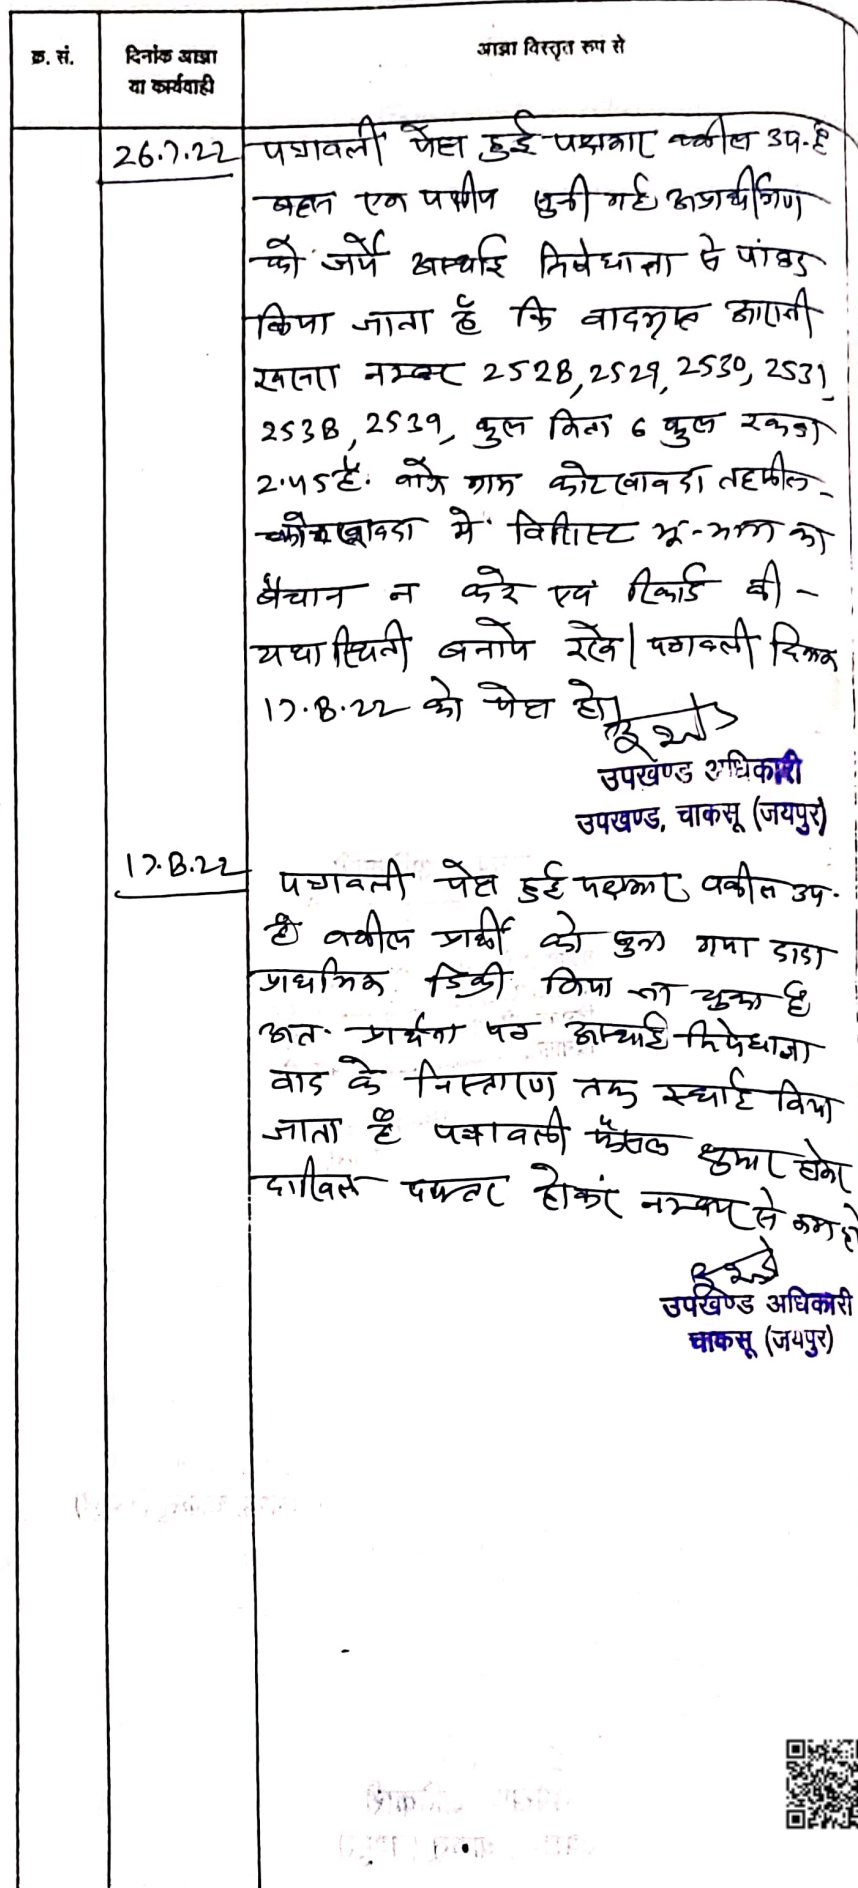 क्र. सं.
दिनांक आज्ञा
या कार्यवाही
आज्ञा विस्तृत रुप से
26.7.22
पत्रावली पेश हुई पक्षकार वकील उप. है
बहस एक पक्षीय सुनी गई अप्रार्थीगण
को जर्ये अस्थाई निषेधाज्ञा से पांबद
किया जाता है कि वादग्रस्त आराजी
खसरा नम्बर 2528, 2529, 2530, 2531,
2538, 2539, कुल किता 6 कुल रकबा
2.45 है. वाके ग्राम कोटखावदा तहसील -
कोटखावदा मे विशिस्ट भू-भाग का
बैचान न करे एवं रिकार्ड की -
यथा स्थिती बनाये रखे। पत्रावली दिनांक
17.8.22 को पेश हो।
उपखण्ड अधिकारी
उपखण्ड, चाकसू (जयपुर)
17.8.22
पत्रावली पेश हुई पक्षकार वकील उप.
है वकील प्रार्थी को सुना गया
प्राथमिक डिक्री किया जा चुका है
अतः प्रार्थना पत्र अस्थाई निषेधाज्ञा
वाद के निस्तारण तक स्थाई किया
जाता है पत्रावली फैसल शुमार होकर
दाखिल दफ्तर होकर नम्बर से कम हो
उपखण्ड अधिकारी
चाकसू (जयपुर)